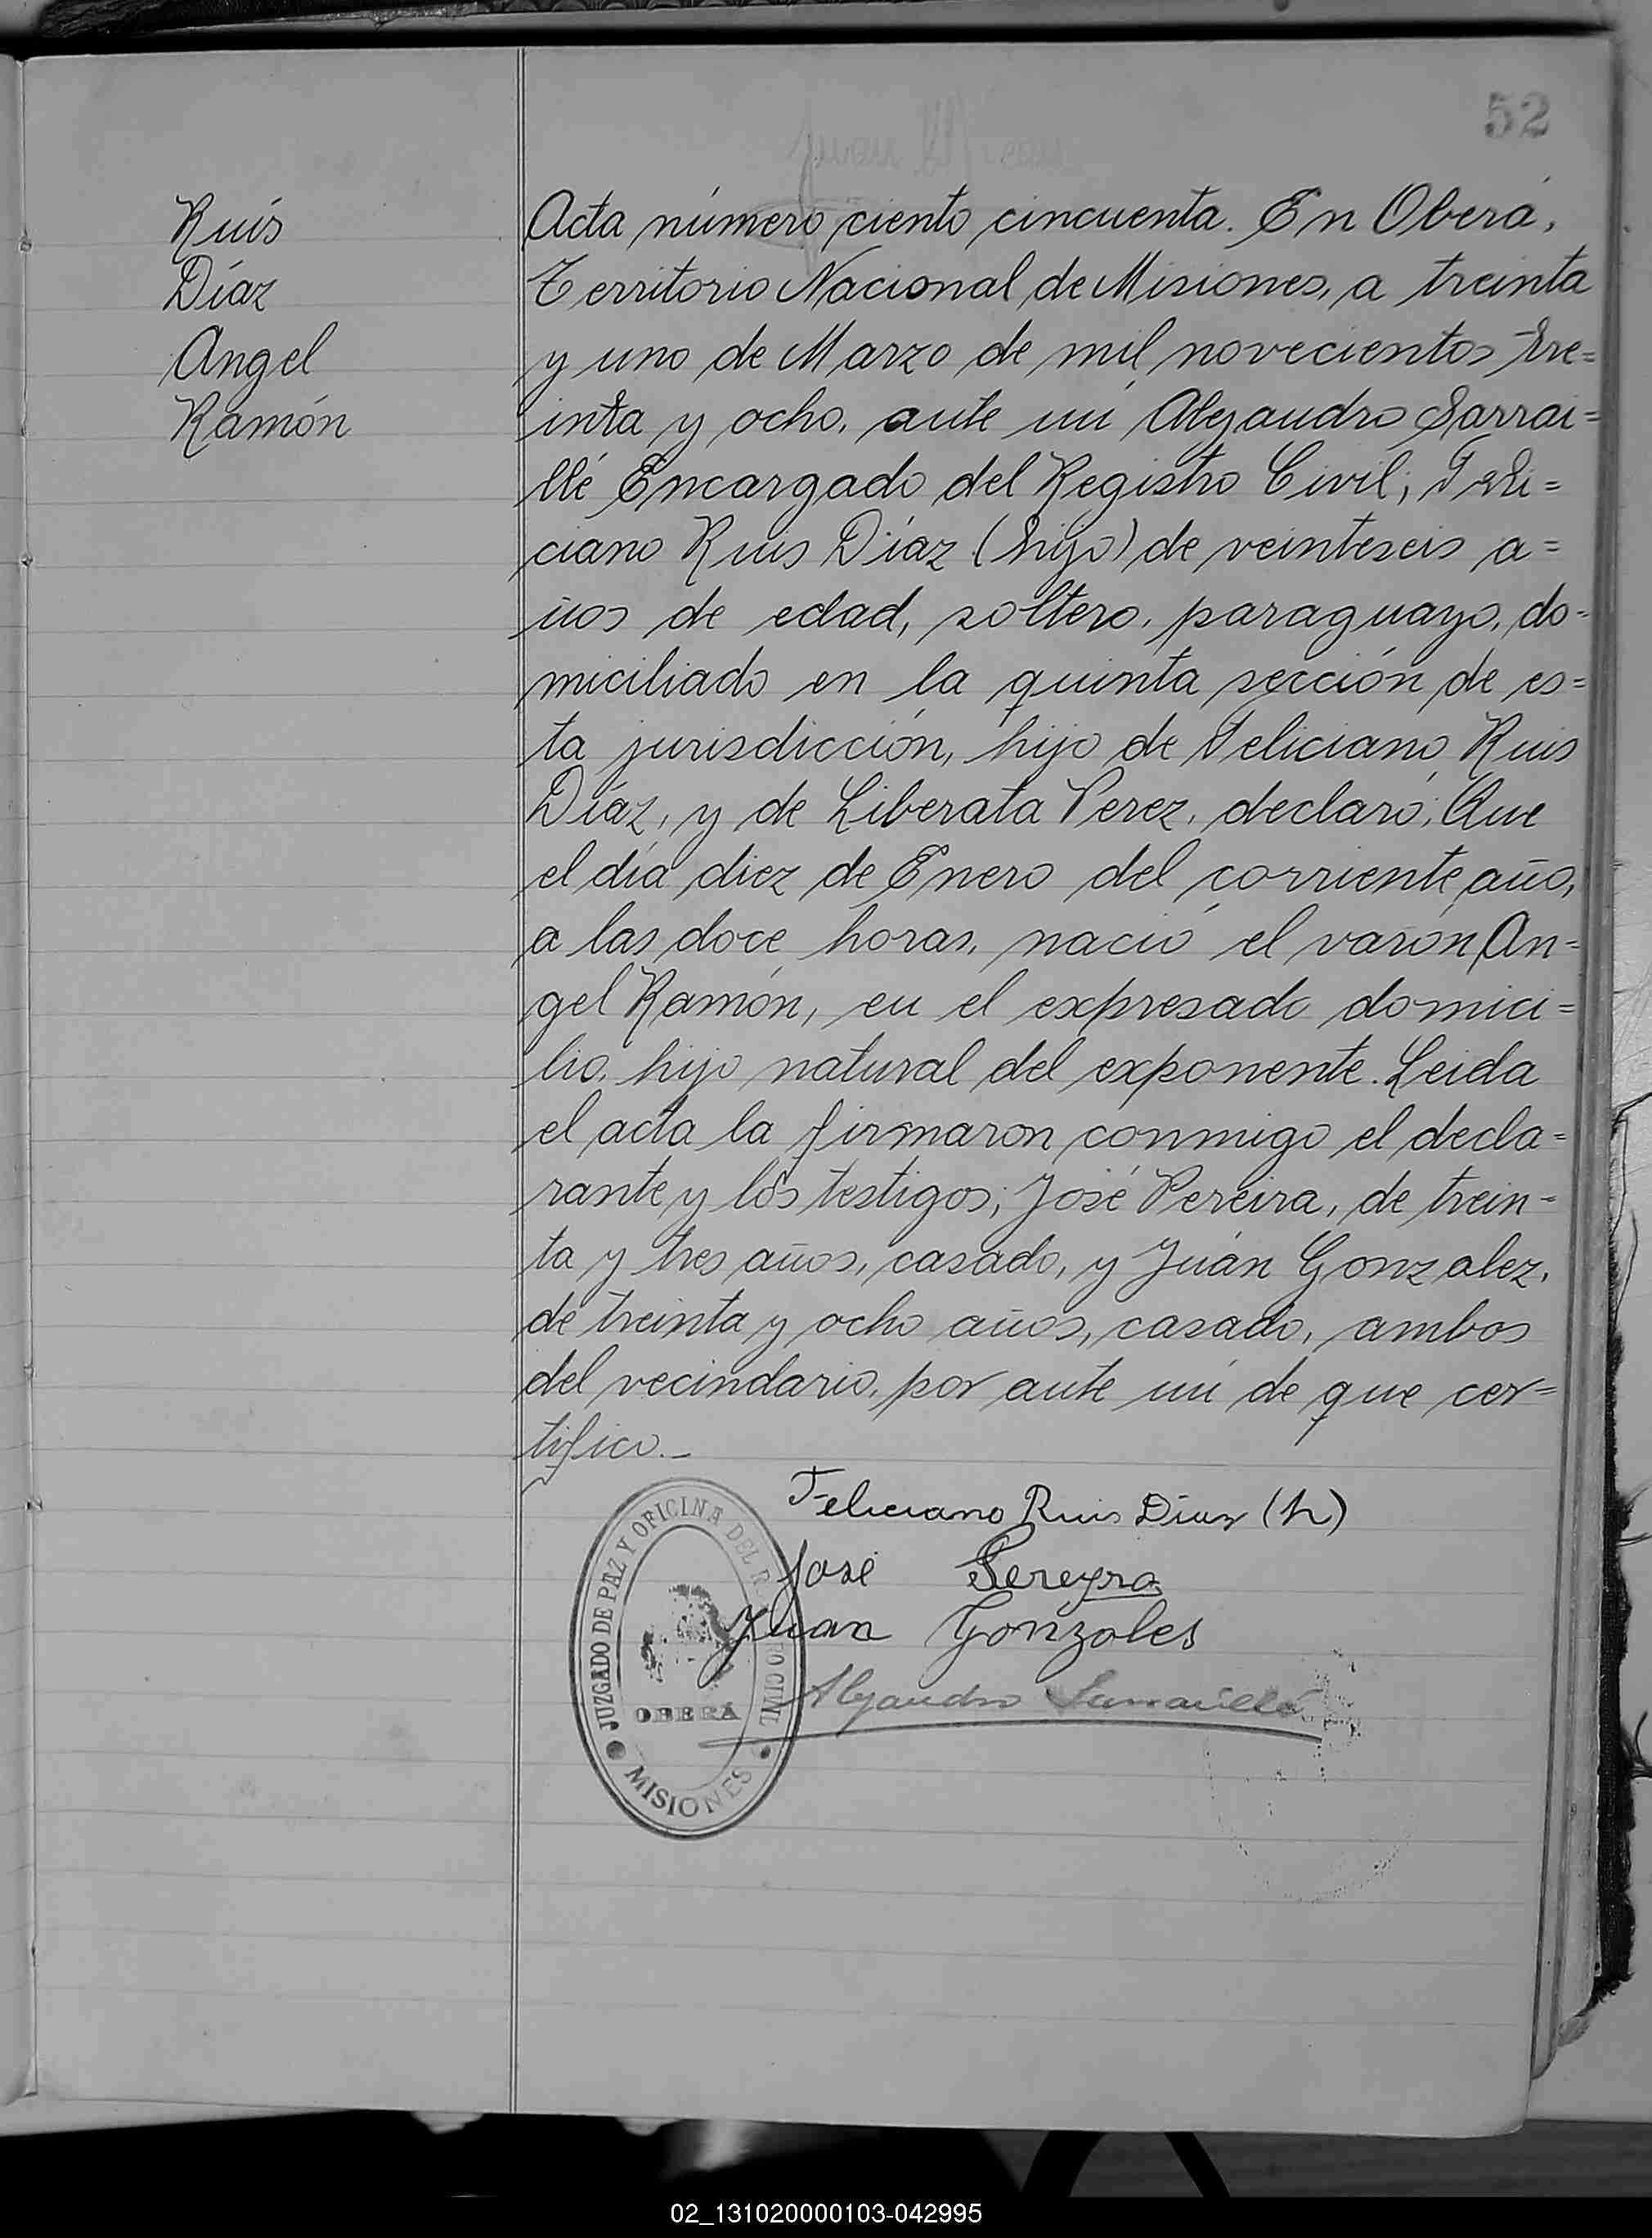 52
Ruis
Díaz
Angel
Ramón
Acta número ciento cincuenta. En Oberá,
Territorio Nacional de Misiones, a treinta
y uno de Marzo de mil novecientos tre=
inta y ocho, ante mi Alejandro Sarrai=
llé Encargado del Registro Civil; Feli=
ciano Ruis Díaz (hijo) de veinteseis a=
ños de edad, soltero, paraguayo, do=
miciliado en la quinta sección de es=
ta jurisdicción, hijo de Feliciano Ruis
Díaz, y de Liberata Perez, declaró; Que
el día diez de Enero del corriente año,
a las doce horas, nació el varón An=
gel Ramón, en el expresado domici=
lio, hijo natural del exponente. Leida
el acta la firmaron conmigo el decla=
rante y los testigos; José Pereira, de trein=
ta y tres años, casado, y Juán Gonzalez,
de treinta y ocho años, casado, ambos
del vecindario, por ante mi de que cer=
tifico.-
Feliciano Ruis Díaz (h)
José Pereyra
Juan Gonzales
Alejandro Sarraillé
JUZGADO DE PAZ Y OFICINA DEL REGISTRO CIVIL
OBERÁ
MISIONES
02_131020000103-042995